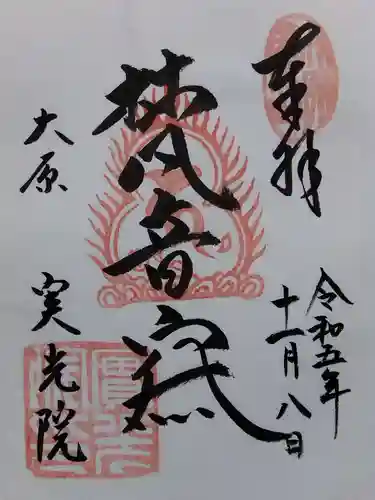 奉拝
令和五年
十一月八日
梵音
大原
実光院